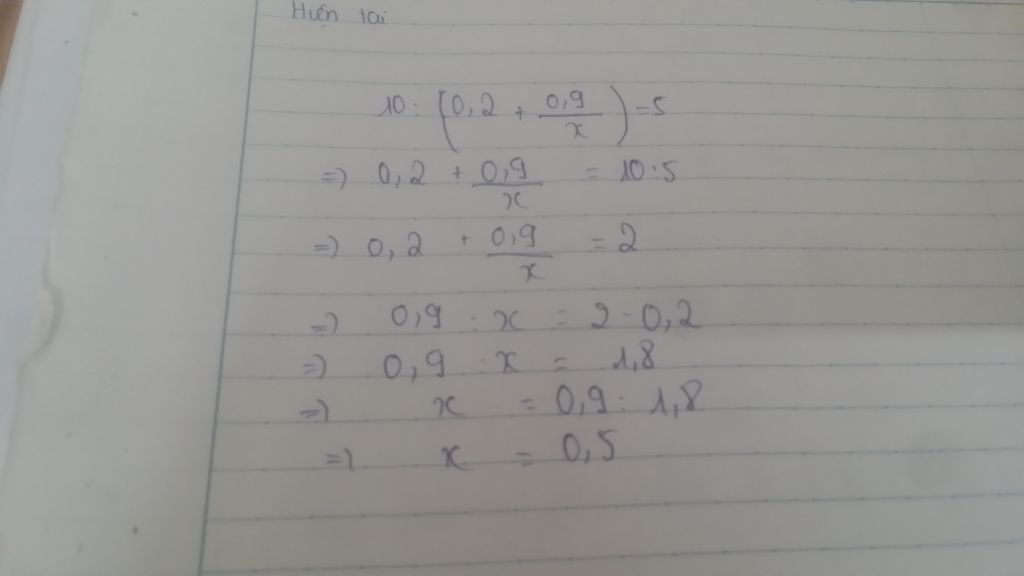 Hiện tại
10 : (0,2 + 0,9/x) = 5
=> 0,2 + 0,9/x = 10 : 5
=> 0,2 + 0,9/x = 2
=> 0,9 : x = 2 - 0,2
=> 0,9 : x = 1,8
=> x = 0,9 : 1,8
=> x = 0,5